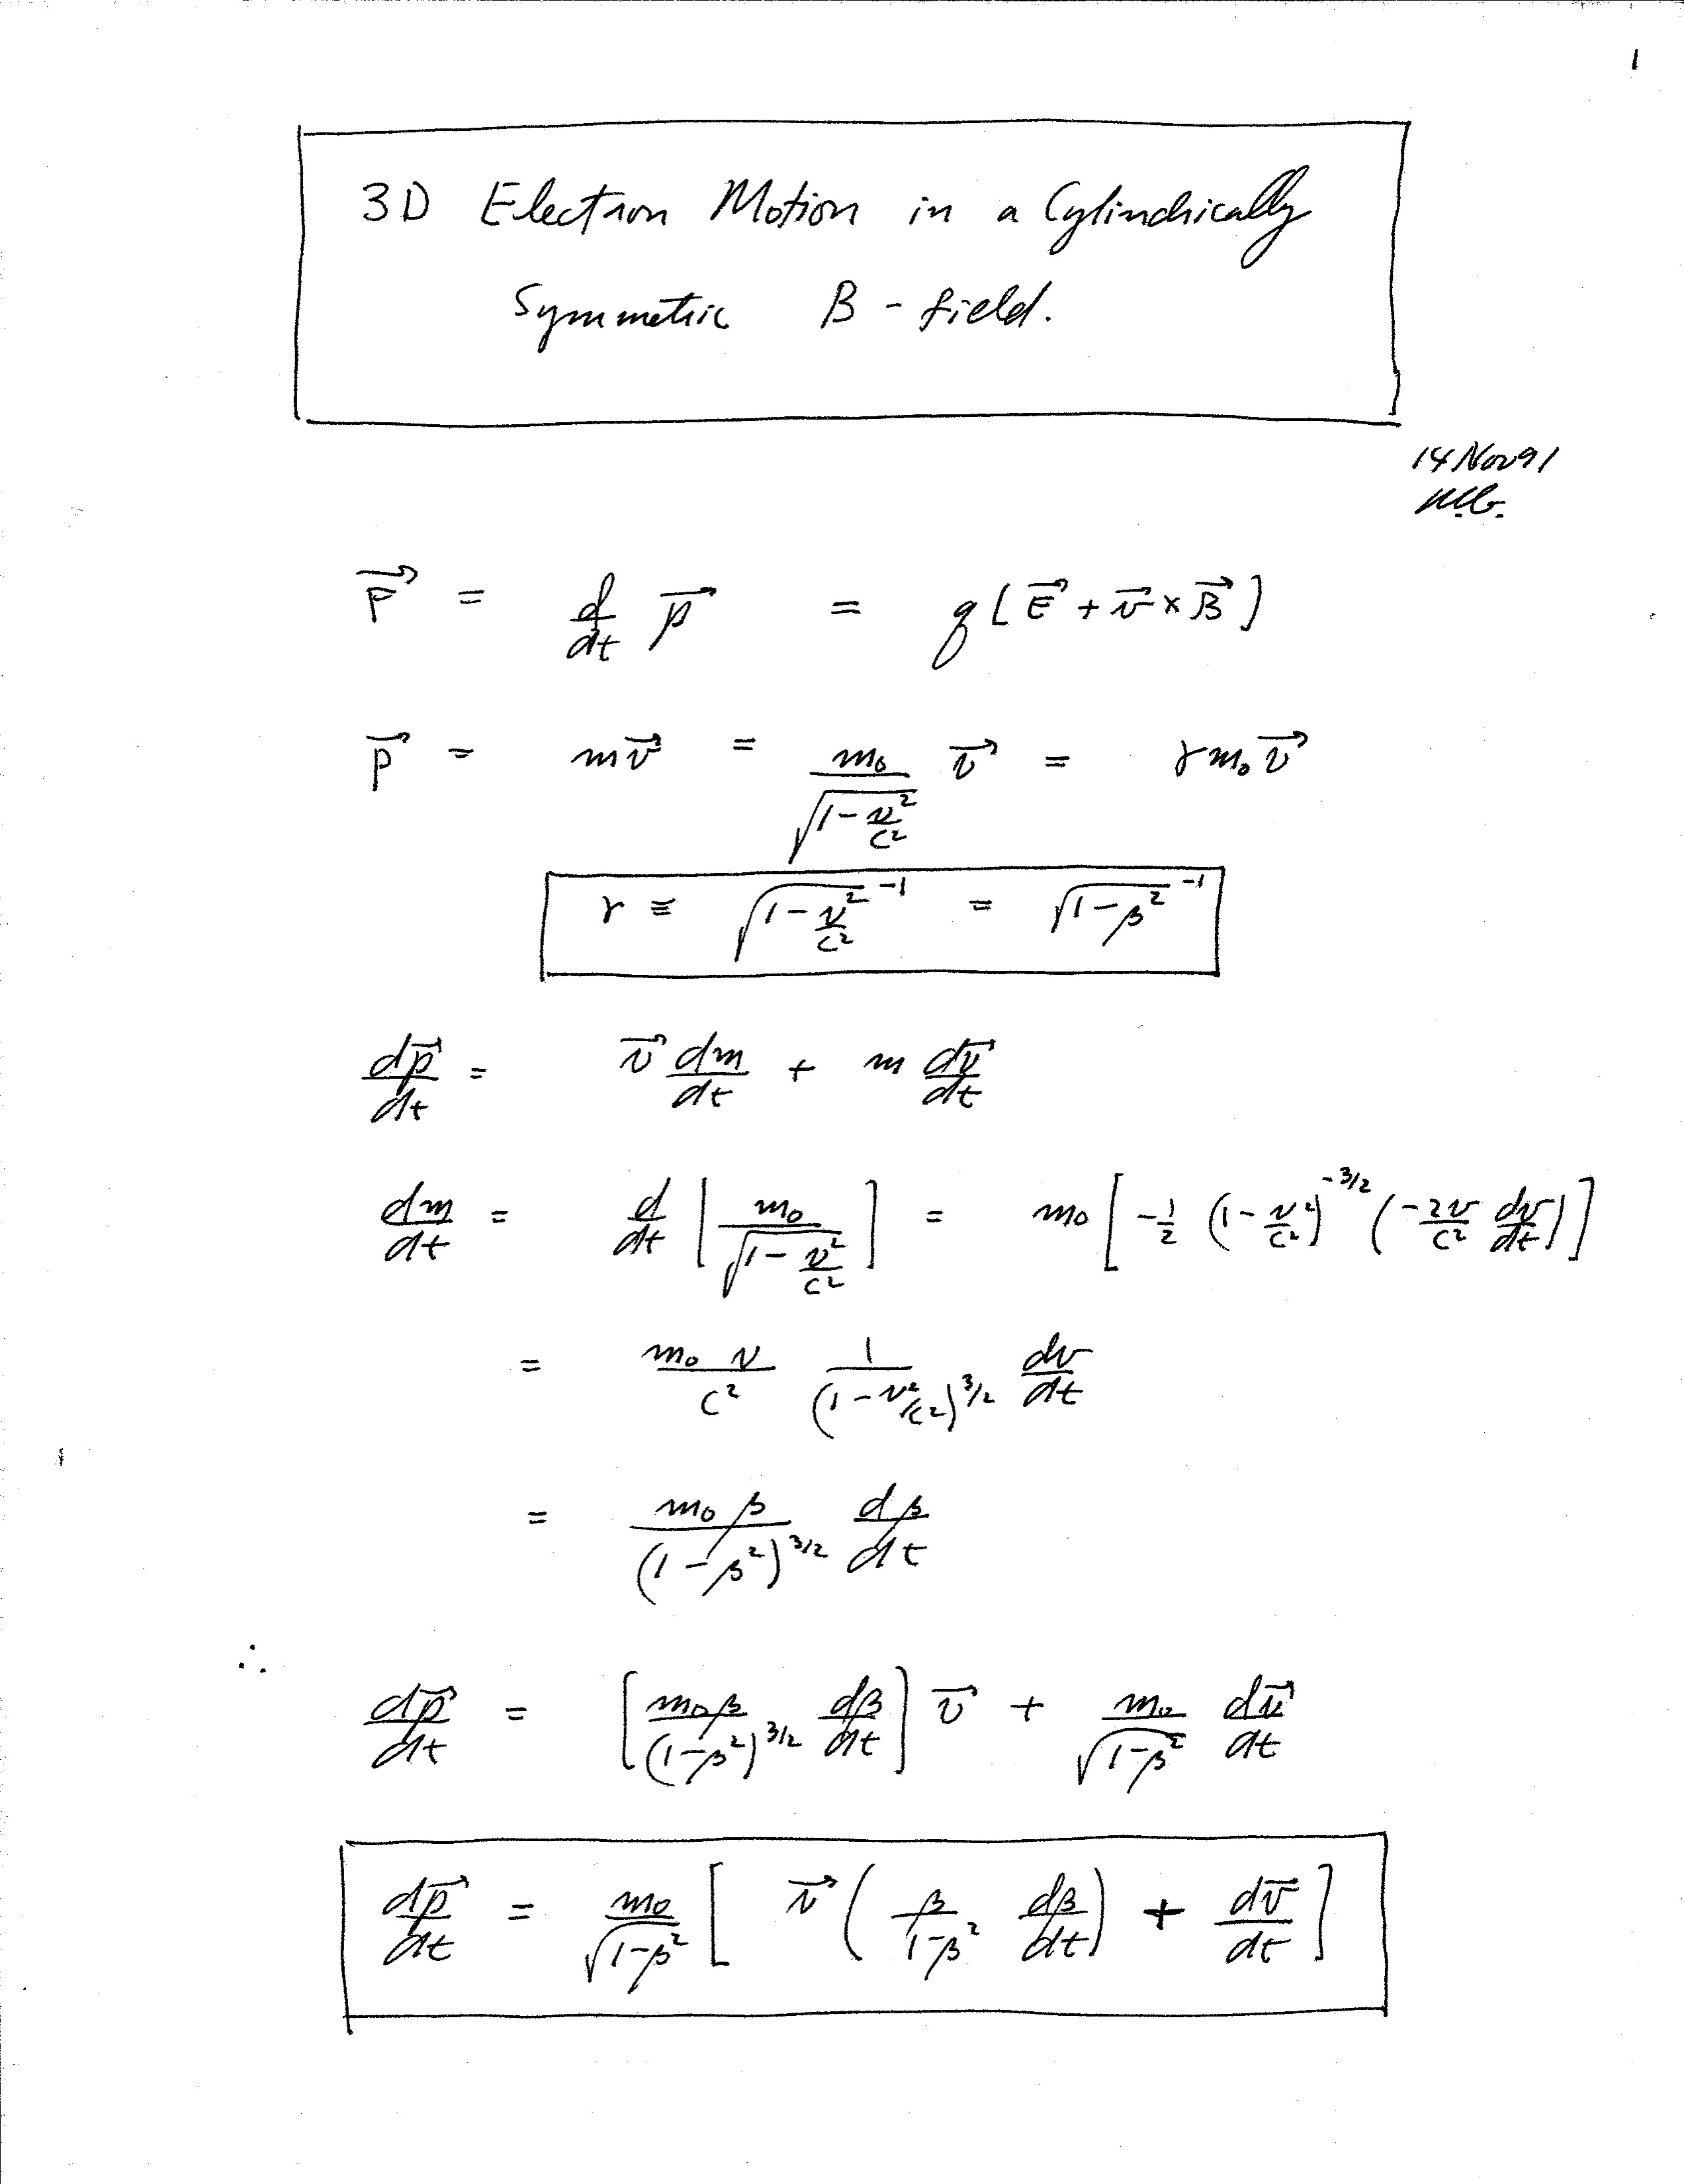 1
3D Electron Motion in a Cylindrically
Symmetric B - field.
14 Nov 91
$\vec{F} = \frac{d}{dt} \vec{p} = q [ \vec{E} + \vec{v} \times \vec{B} ]$
$\vec{p} = m\vec{v} = \frac{m_0}{\sqrt{1 - \frac{v^2}{c^2}}} \vec{v} = \gamma m_0 \vec{v}$
$\gamma \equiv \sqrt{1 - \frac{v^2}{c^2}}^{-1} = \sqrt{1 - \beta^2}^{-1}$
$\frac{d\vec{p}}{dt} = \vec{v} \frac{dm}{dt} + m \frac{d\vec{v}}{dt}$
$\frac{dm}{dt} = \frac{d}{dt} \left[ \frac{m_0}{\sqrt{1 - \frac{v^2}{c^2}}} \right] = m_0 \left[ -\frac{1}{2} \left(1 - \frac{v^2}{c^2}\right)^{-3/2} \left( \frac{-2v}{c^2} \frac{dv}{dt} \right) \right]$
$= \frac{m_0 v}{c^2} \frac{1}{(1 - v^2/c^2)^{3/2}} \frac{dv}{dt}$
$= \frac{m_0 \beta}{(1 - \beta^2)^{3/2}} \frac{d\beta}{dt}$
∴
$\frac{d\vec{p}}{dt} = \left[ \frac{m_0 \beta}{(1 - \beta^2)^{3/2}} \frac{d\beta}{dt} \right] \vec{v} + \frac{m_0}{\sqrt{1 - \beta^2}} \frac{d\vec{v}}{dt}$
$\frac{d\vec{p}}{dt} = \frac{m_0}{\sqrt{1 - \beta^2}} \left[ \vec{v} \left( \frac{\beta}{1 - \beta^2} \frac{d\beta}{dt} \right) + \frac{d\vec{v}}{dt} \right]$